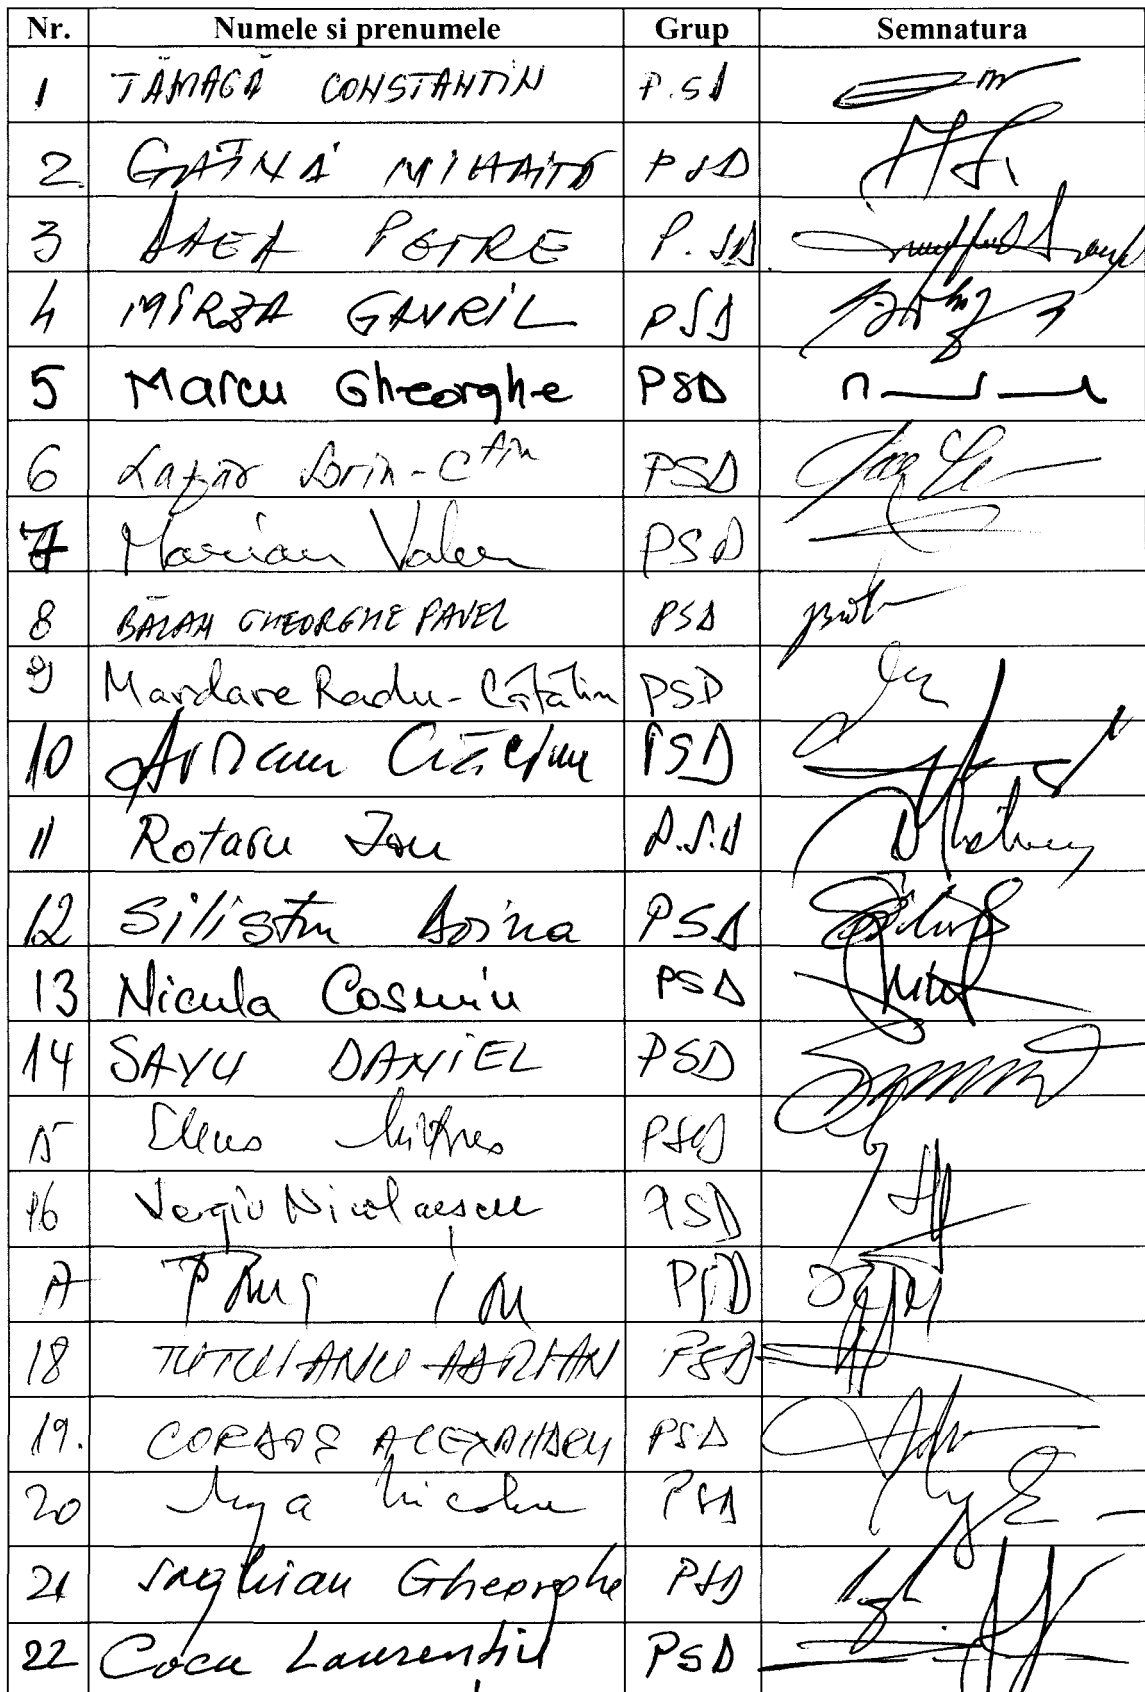 Nr. Numele si prenumele Grup Semnatura
1 TĂMAGĂ CONSTANTIN P.SD
2. GAINĂ MIHAITA PSD
3 DAEA PETRE P.SD
4 MÎRZA GAVRIL PSD
5 Marcu Gheorghe PSD
6 Lazăr Sorin-Ctin PSD
7 Marian Valer PSD
8 BĂLAN GHEORGHE PAVEL PSD
9 Mardare Radu-Cătălin PSD
10 Avram Crăciun PSD
11 Rotaru Ion P.S.D
12 Silistru Doina PSD
13 Nicula Cosmin PSD
14 SAVU DANIEL PSD
15 PSD
16 Sergiu Nicolaescu PSD
17 PSD
18 TUTUIANU ADRIAN PSD
19. CORDOȘ ALEXANDRU PSD
20 PSD
21 Saghian Gheorghe PSD
22 Cocu Laurentiu PSD